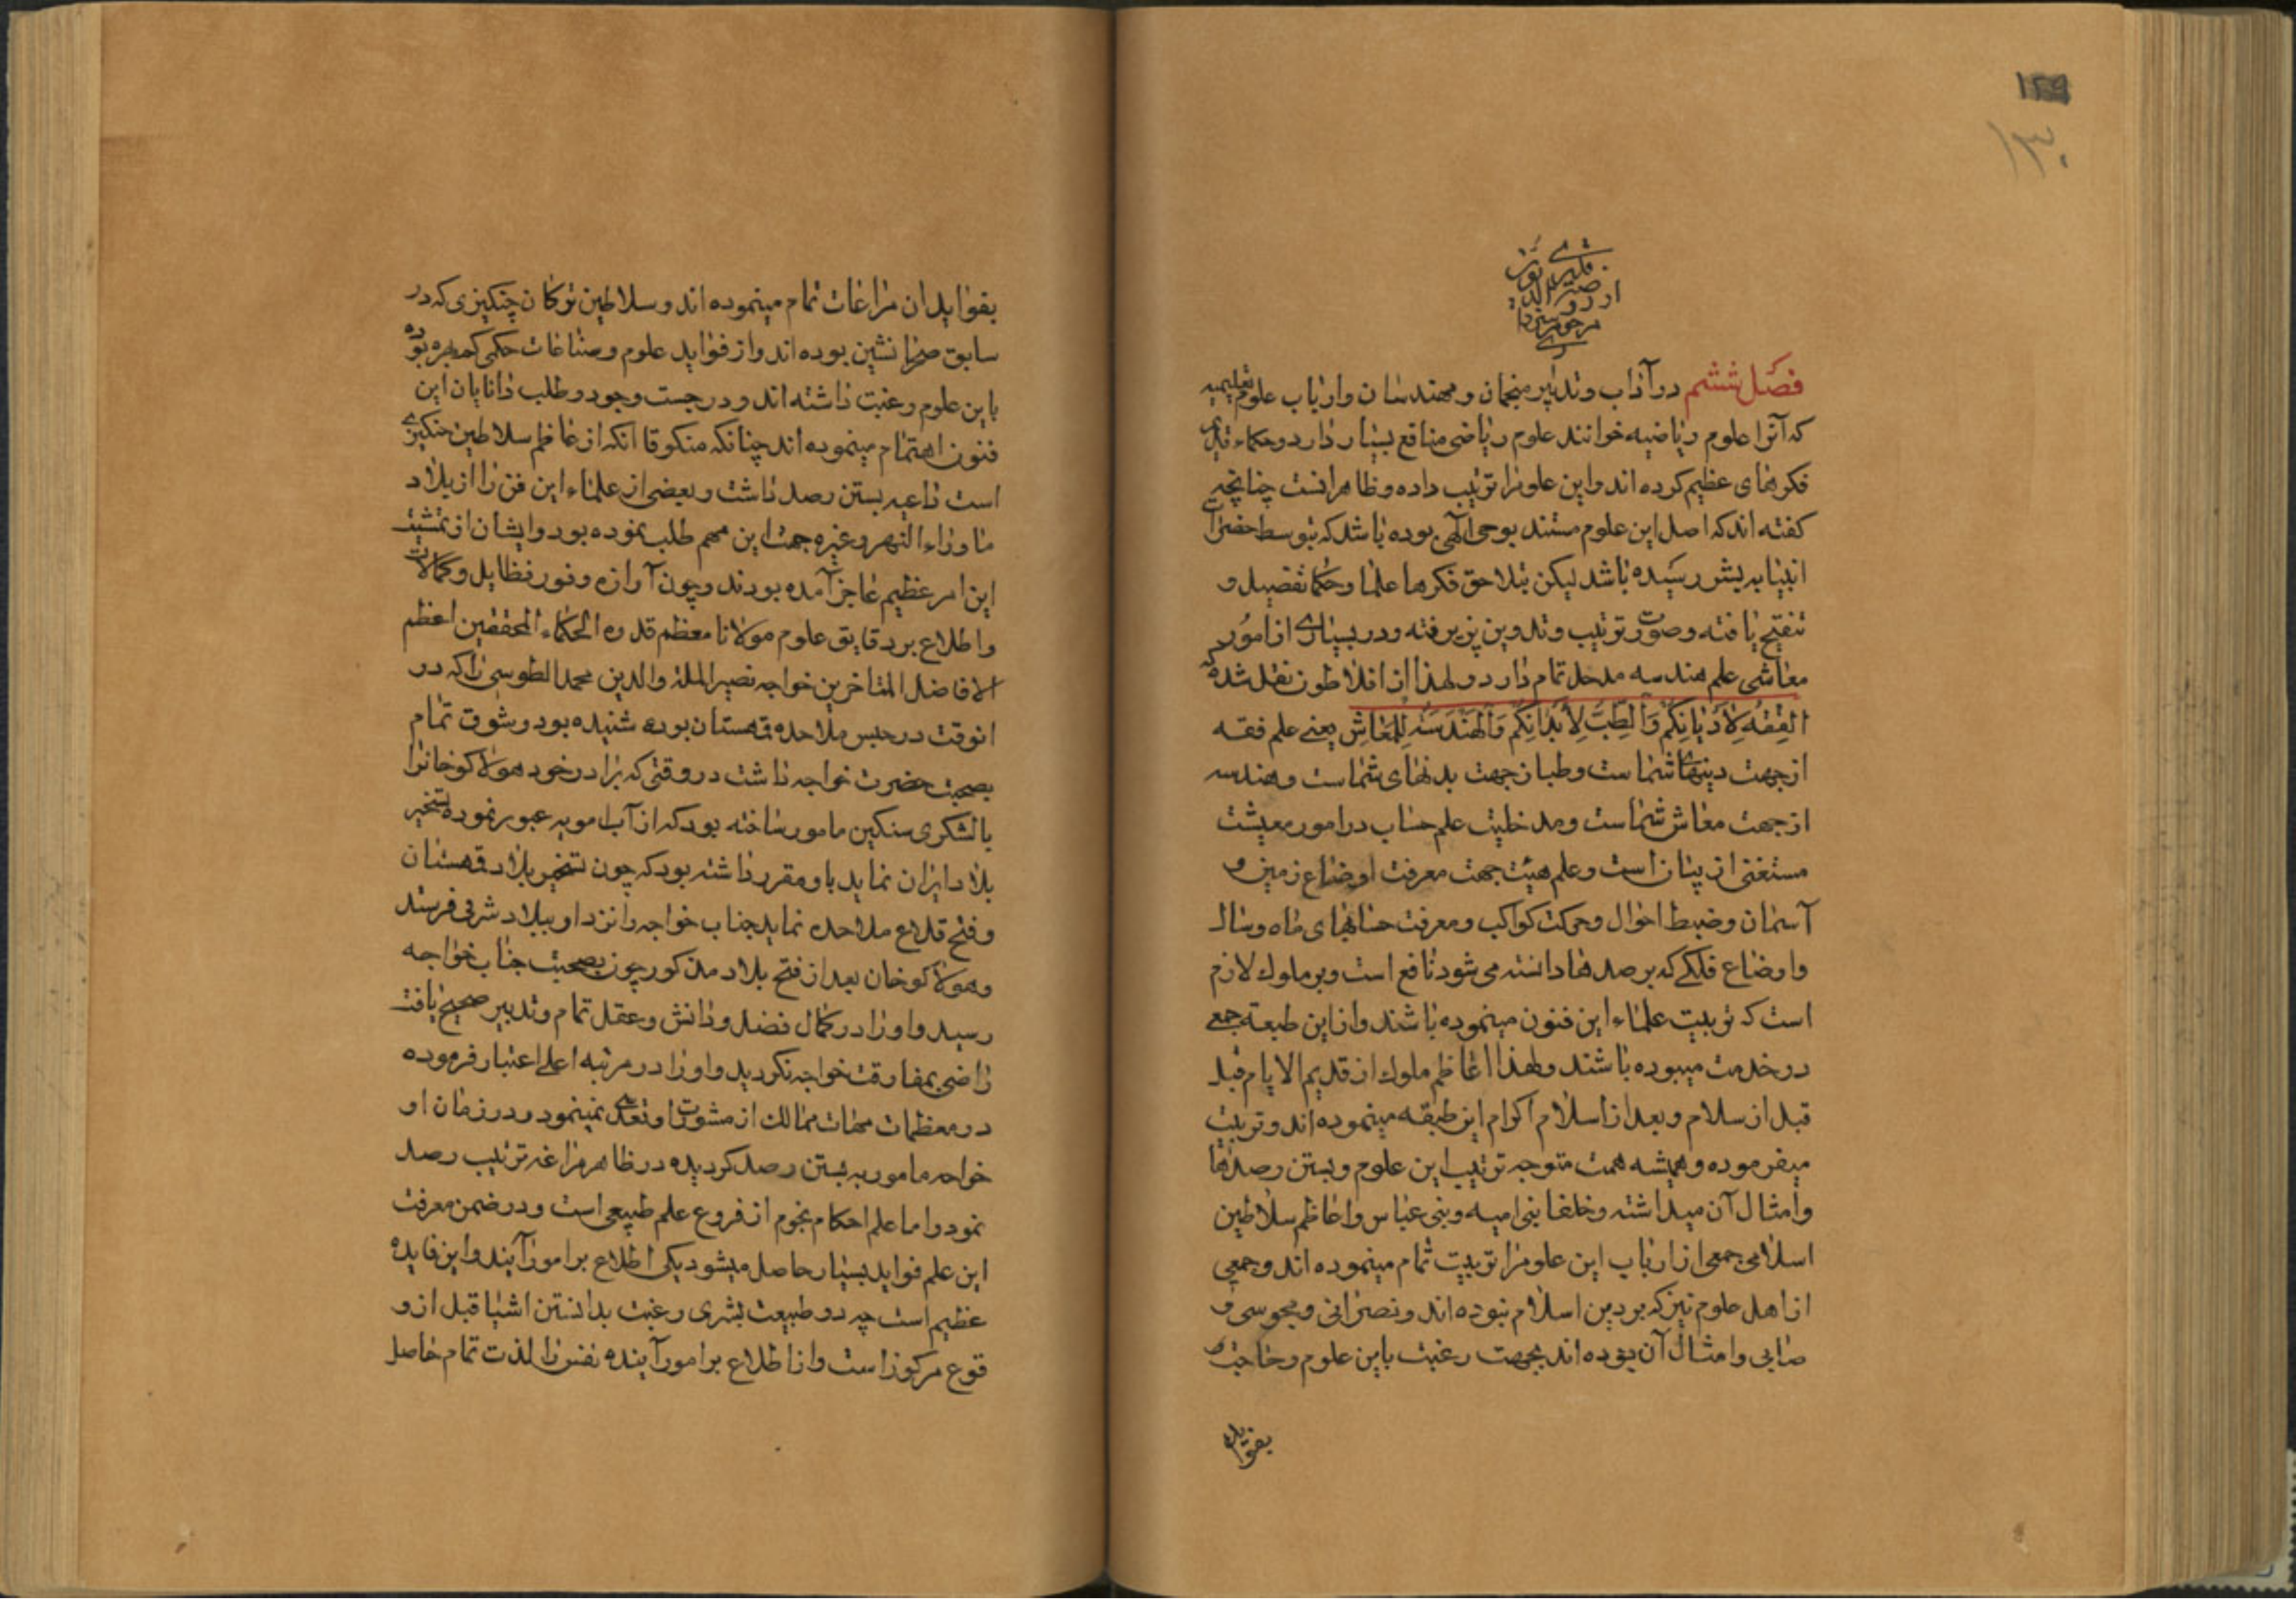 ۱۲۹
۱۳۰
فصل ششم در آداب و تدبیر منجمان و مهندسان و ارباب علوم تعلیمیه
که آنرا علوم ریاضیه خوانند علوم ریاضی منافع بسیار دارد و حکماء قدیم
فکرهای عظیم کرده اند و این علومرا ترتیب داده و ظاهرانست چنانچه
کفته اند که اصل این علوم مستند بوحی الهی بوده باشد که بتوسط حضرات
انبیا به بشر رسیده باشد لیکن بتلاحق فکرها علما و حکما تفصیل و
تنقیح یافته و صورت ترتیب و تدوین پزیرفته و در بسیاری از امور
معاشی علم هندسه مدخل تمام دارد و لهذا از افلاطون نقل شده که
الفِقهُ لِاَدْیانِکُمْ وَالطِّبُّ لِاَبْدانِکُمْ وَالهَنْدَسَةُ لِلمَعاشِ یعنی علم فقه
از جهت دینهای شماست و طب از جهت بدنهای شماست و هندسه
از جهت معاش شماست و مدخلیت علم حساب در امور معیشت
مستغنی از بیان است و علم هیئت جهت معرفت اوضاع زمین و
آسمان و ضبط احوال و حرکت کواکب و معرفت حسابهای ماه و سال
و اوضاع فلکی که برصدها دانسته می شود نافع است و بر ملوک لازم
است که تربیت علماء این فنون مینموده باشند و از این طبعه جمعی
در خدمت میبوده باشند و لهذا اعاظم ملوک از قدیم الایام قبل
قبل از سلام و بعد از اسلام اکرام این طبقه مینموده اند و تربیت
میفرموده و همیشه همت متوجه ترتیب این علوم و بستن رصدها
و امثال آن میداشته و خلفا بنی امیه و بنی عباس و اعاظم سلاطین
اسلامی جمعی از ارباب این علومرا تربیت تمام مینموده اند و جمعی
از اهل علوم نیز که بر دین اسلام نبوده اند و نصرانی و مجوسی و
صابی و امثال آن بوده اند بجهت رغبت باین علوم و حاجت
بفواید
بفواید ان مراعات تمام مینموده اند و سلاطین ترکان چنکیزی که در
سابق صحرا نشین بوده اند و از فواید علوم و صناعات حکمی کم بهره بوده
باین علوم رغبت داشته اند و در جست وجود و طلب دانایان این
فنون اهتمام مینموده اند چنانکه منکوقا آنکه از اعاظم سلاطین چنکیزی
است داعیه بستن رصد داشت و بعضی از علماء این فن را از بلاد
ماوراء النهر و غیره جهت این مهم طلب نموده بود و ایشان از تمشیت
این امر عظیم عاجز آمده بودند و چون آوازه وفور فضایل و کمالات
و اطلاع بر دقایق علوم مولانا معظم قدوه الحکماء المحققین اعظم
الافاضل المتاخرین خواجه نصیر الملة والدین محمد الطوسی را که در
انوقت در حبس ملاحده قهستان بوده شنیده بود و شوق تمام
بصحبت حضرت خواجه داشت در وقتی که برادر خود هولاکو خانرا
با لشکری سنکین مامور ساخته بود که از آب امویه عبور نموده تسخیر
بلاد ایران نماید باو مقرر داشته بود که چون تسخیر بلاد قهستان
و فتح قلاع ملاحده نماید جناب خواجه را نزد او ببلاد شرقی فرستد
و هولاکو خان بعد از فتح بلاد مذکور چون بصحبت جناب خواجه
رسید و او را در کمال فضل و دانش و عقل تمام و تدبیر صحیح یافت
راضی بمفارقت خواجه نکردید و او را در مرتبه اعلی اعتبار فرموده
در معظمات مهمات ممالک از مشورت او تعدی نمینمود و در زمان او
خواجه مامور به بستن رصد کردیده در ظاهر مراغه ترتیب رصد
نمود و اما علم احکام نجوم از فروع علم طبیعی است و در ضمن معرفت
این علم فواید بسیار حاصل میشود یکی اطلاع بر امور آیند و این فایده
عظیم است چه در طبیعت بشری رغبت بدانستن اشیا قبل از و
قوع مرکوز است و از اطلاع بر امور آینده نفس را لذت تمام حاصل